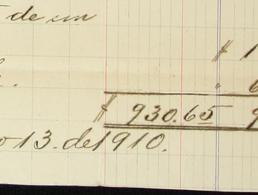 de un
$ 1
$ 930.65 9
o 13. de 1910.